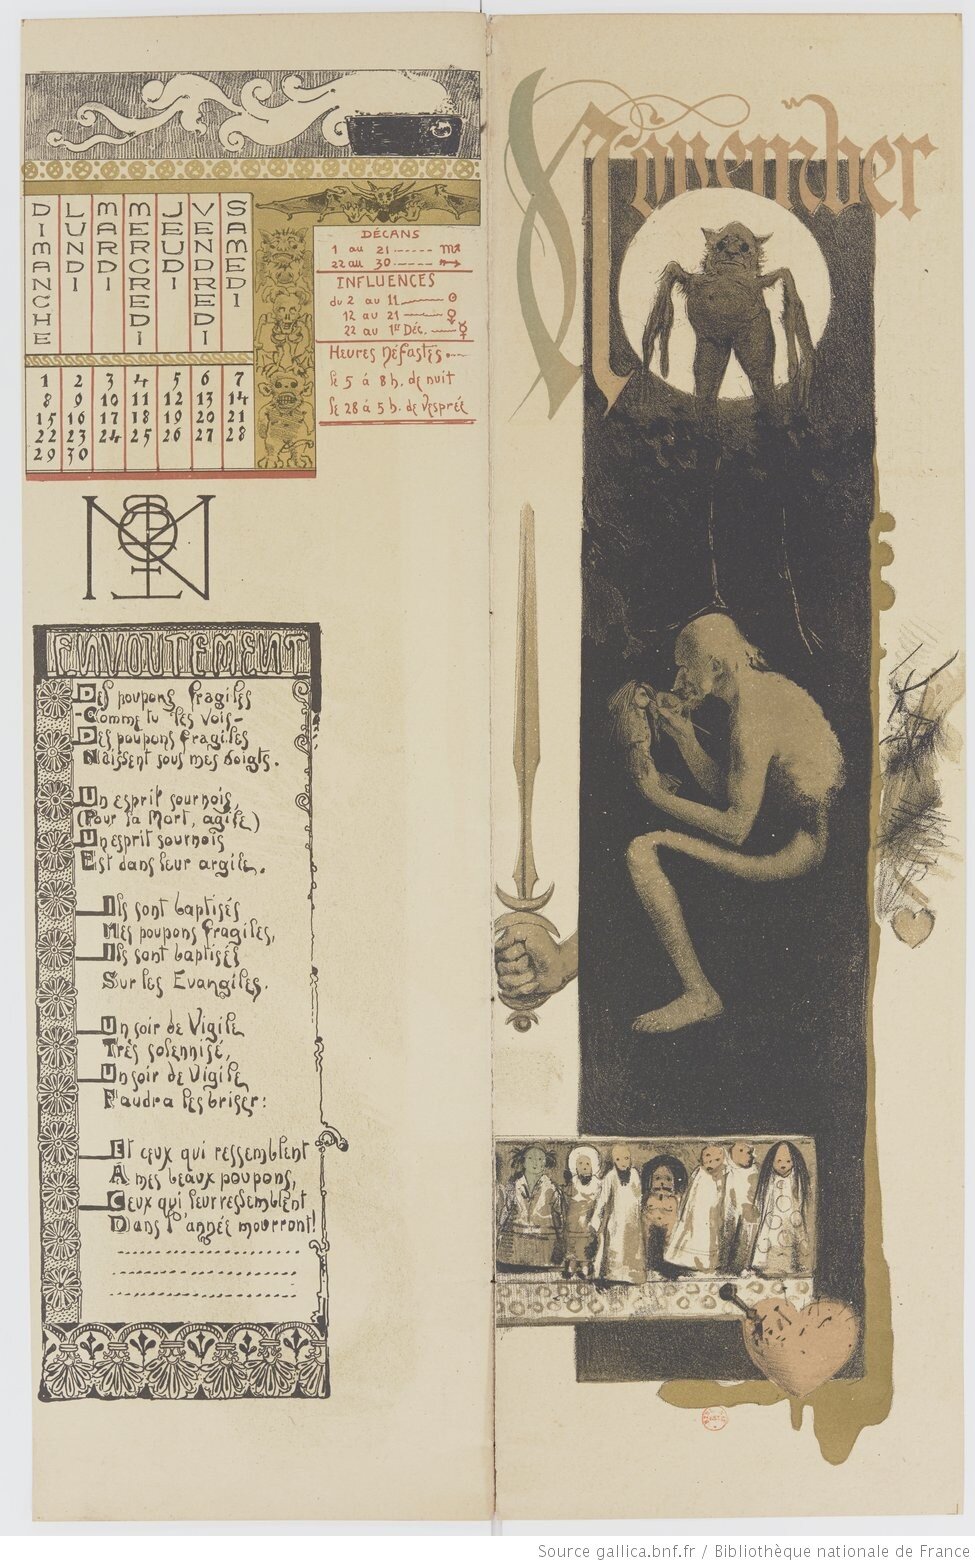 DIMANCHE
LUNDI
MARDI
MERCREDI
JEUDI
VENDREDI
SAMEDI
1 2 3 4 5 6 7
8 9 10 11 12 13 14
15 16 17 18 19 20 21
22 23 24 25 26 27 28
29 30
DÉCANS
1 au 21 ----- ♏
22 au 30 ----- ♐
INFLUENCES
du 2 au 11 ☉
12 au 21 ♀
22 au 1er Déc. ☿
Heures Néfastes.
le 5 á 8 h. de nuit
le 28 á 5 h. de Vesprée
ENVOUTEMENT
Des poupons fragiles
-Comme tu les vois-
Des poupons fragiles
Naissent sous mes doigts.
Un esprit sournois,
(Pour la Mort, agile)
Un esprit sournois
Est dans leur argile.
Ils sont baptisés
Mes poupons fragiles,
Ils sont baptisés
Sur les Evangiles.
Un soir de Vigile
Très solennisé,
Un soir de Vigile
Faudra les briser:
Et ceux qui ressemblent
A mes beaux poupons,
Ceux qui leur ressemblent
Dans l'année mourront!
November
Source gallica.bnf.fr / Bibliothèque nationale de France